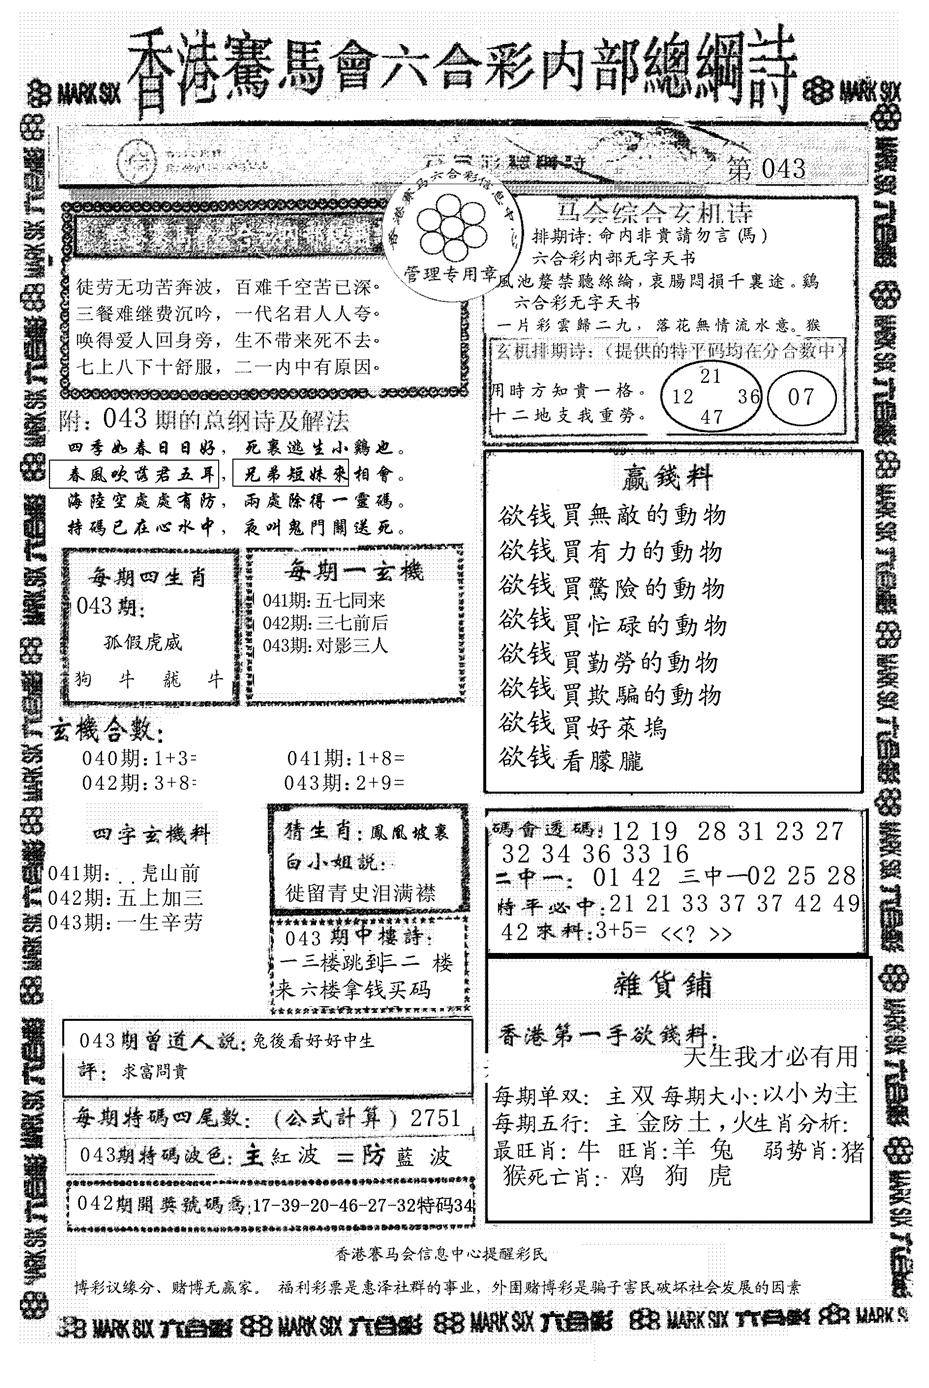 香港賽馬會六合彩内部總綱詩
MARK SIX
MARK SIX
第 043
香港赛马六合彩信息中
管理专用章
徒劳无功苦奔波，百难千空苦已深。
三餐难继费沉吟，一代名君人人夸。
唤得爱人回身旁，生不带来死不去。
七上八下十舒服，二一内中有原因。
附：043期的总纲诗及解法
四季如春日日好，死裏逃生小鷄也。
春風吹落君五耳，兄弟短妹來相會。
海陸空處處有防，兩處除得一靈碼。
特碼已在心水中，夜叫鬼門關送死。
每期四生肖
043期：
孤假虎威
狗 牛 龍 牛
每期一玄機
041期:五七同来
042期:三七前后
043期:对影三人
玄機合數：
040期:1+3=
041期:1+8=
042期:3+8=
043期:2+9=
四字玄機料
041期: 虎山前
042期:五上加三
043期:一生辛劳
猜生肖：鳳凰坡裏
白小姐説：
徙留青史泪满襟
043期中樓詩：
一三楼跳到三二 楼
来六楼拿钱买码
043期曾道人説：兔後看好好中生
評：求富問貴
每期特碼四尾數：(公式計算) 2751
043期特碼波色：主紅波＝防藍波
042期開獎號碼爲:17-39-20-46-27-32特码34
马会综合玄机诗
排期诗：命内非貴請勿言(馬)
六合彩内部无字天书
風池釐禁聽絲綸，衷腸悶損千裏途。鷄
六合彩无字天书
一片彩雲歸二九，落花無情流水意。猴
玄机排期诗：(提供的特平码均在分合数中)
用時方知貴一格。
十二地支我重勞。
21
12 36
47
07
贏錢料
欲钱買無敵的動物
欲钱買有力的動物
欲钱買驚險的動物
欲钱買忙碌的動物
欲钱買勤勞的動物
欲钱買欺騙的動物
欲钱買好萊塢
欲钱看朦朧
碼會透碼：12 19 28 31 23 27
32 34 36 33 16
二中一：01 42 三中一02 25 28
特平必中：21 21 33 37 37 42 49
42來料：3+5= <<? >>
雜貨鋪
香港第一手欲錢料：
天生我才必有用
每期单双：主双每期大小:以小为主
每期五行：主 金防土,火生肖分析:
最旺肖：牛 旺肖:羊 兔 弱势肖:猪
猴死亡肖: 鸡 狗 虎
香港赛马会信息中心提醒彩民
博彩议缘分、赌博无赢家。 福利彩票是惠泽社群的事业，外围赌博彩是骗子害民破坏社会发展的因素
MARK SIX 六合彩 MARK SIX 六合彩 MARK SIX 六合彩 MARK SIX 六合彩 MARK SIX